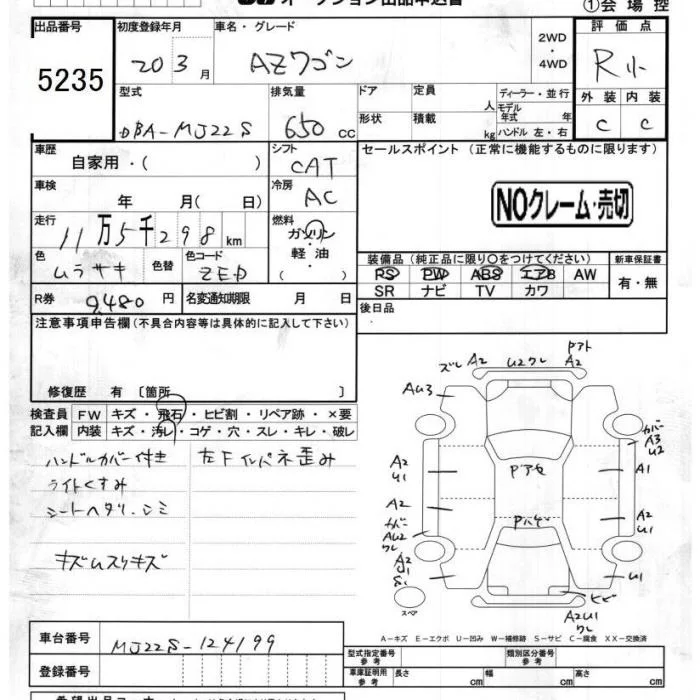 オークション出品申込書 ①会場控
出品番号 初度登録年月 車名・グレード 評価点
5235 20 3月 AZワゴン 2WD・4WD R小
型式 排気量 ドア 定員 ディーラー・並行 外装 内装
DBA-MJ22S 650cc 人 モデル年式 年 C C
形状 積載 kg ハンドル 左・右
車歴 シフト セールスポイント (正常に機能するものに限ります)
自家用・( ) CAT
車検 冷房
年 月( 日) AC NOクレーム・売切
走行 燃料
11万5千298km ガソリン・軽油・
色 色替 色コード 装備品(純正品に限り〇をつけてください) 新車保証書
ムラサキ ZEP PS PW ABS エアB AW 有・無
SR ナビ TV カワ
R券 9,480円 名変通知期限 月 日 後日品
注意事項申告欄(不具合内容等は具体的に記入して下さい)
修復歴 有〔箇所 〕
検査員 FW キズ・飛石・ヒビ割・リペア跡・×要
記入欄 内装 キズ・汚レ・コゲ・穴・スレ・キレ・破レ
ハンドルカバー付き 左Fインパネ歪み
ライトくすみ
シートヘタリ・シミ
キズムスリキズ
ズレ A2 U2ワレ Pアト A2
AU3
カバー A3 U2
A2 U1 Pアセ A1
A2 Pハゲ A2 U1
カバー AU2 ワレ
A2 U1 S1 U1
スペア ヒビ
A2U1 ワレ
A-キズ E-エクボ U-凹み W-補修跡 S-サビ C-腐食 XX-交換済
車台番号 MJ22S-124199 型式指定番号 参考 類別区分番号 参考
登録番号 車庫証明用 参考 長さ cm 幅 cm 高さ cm